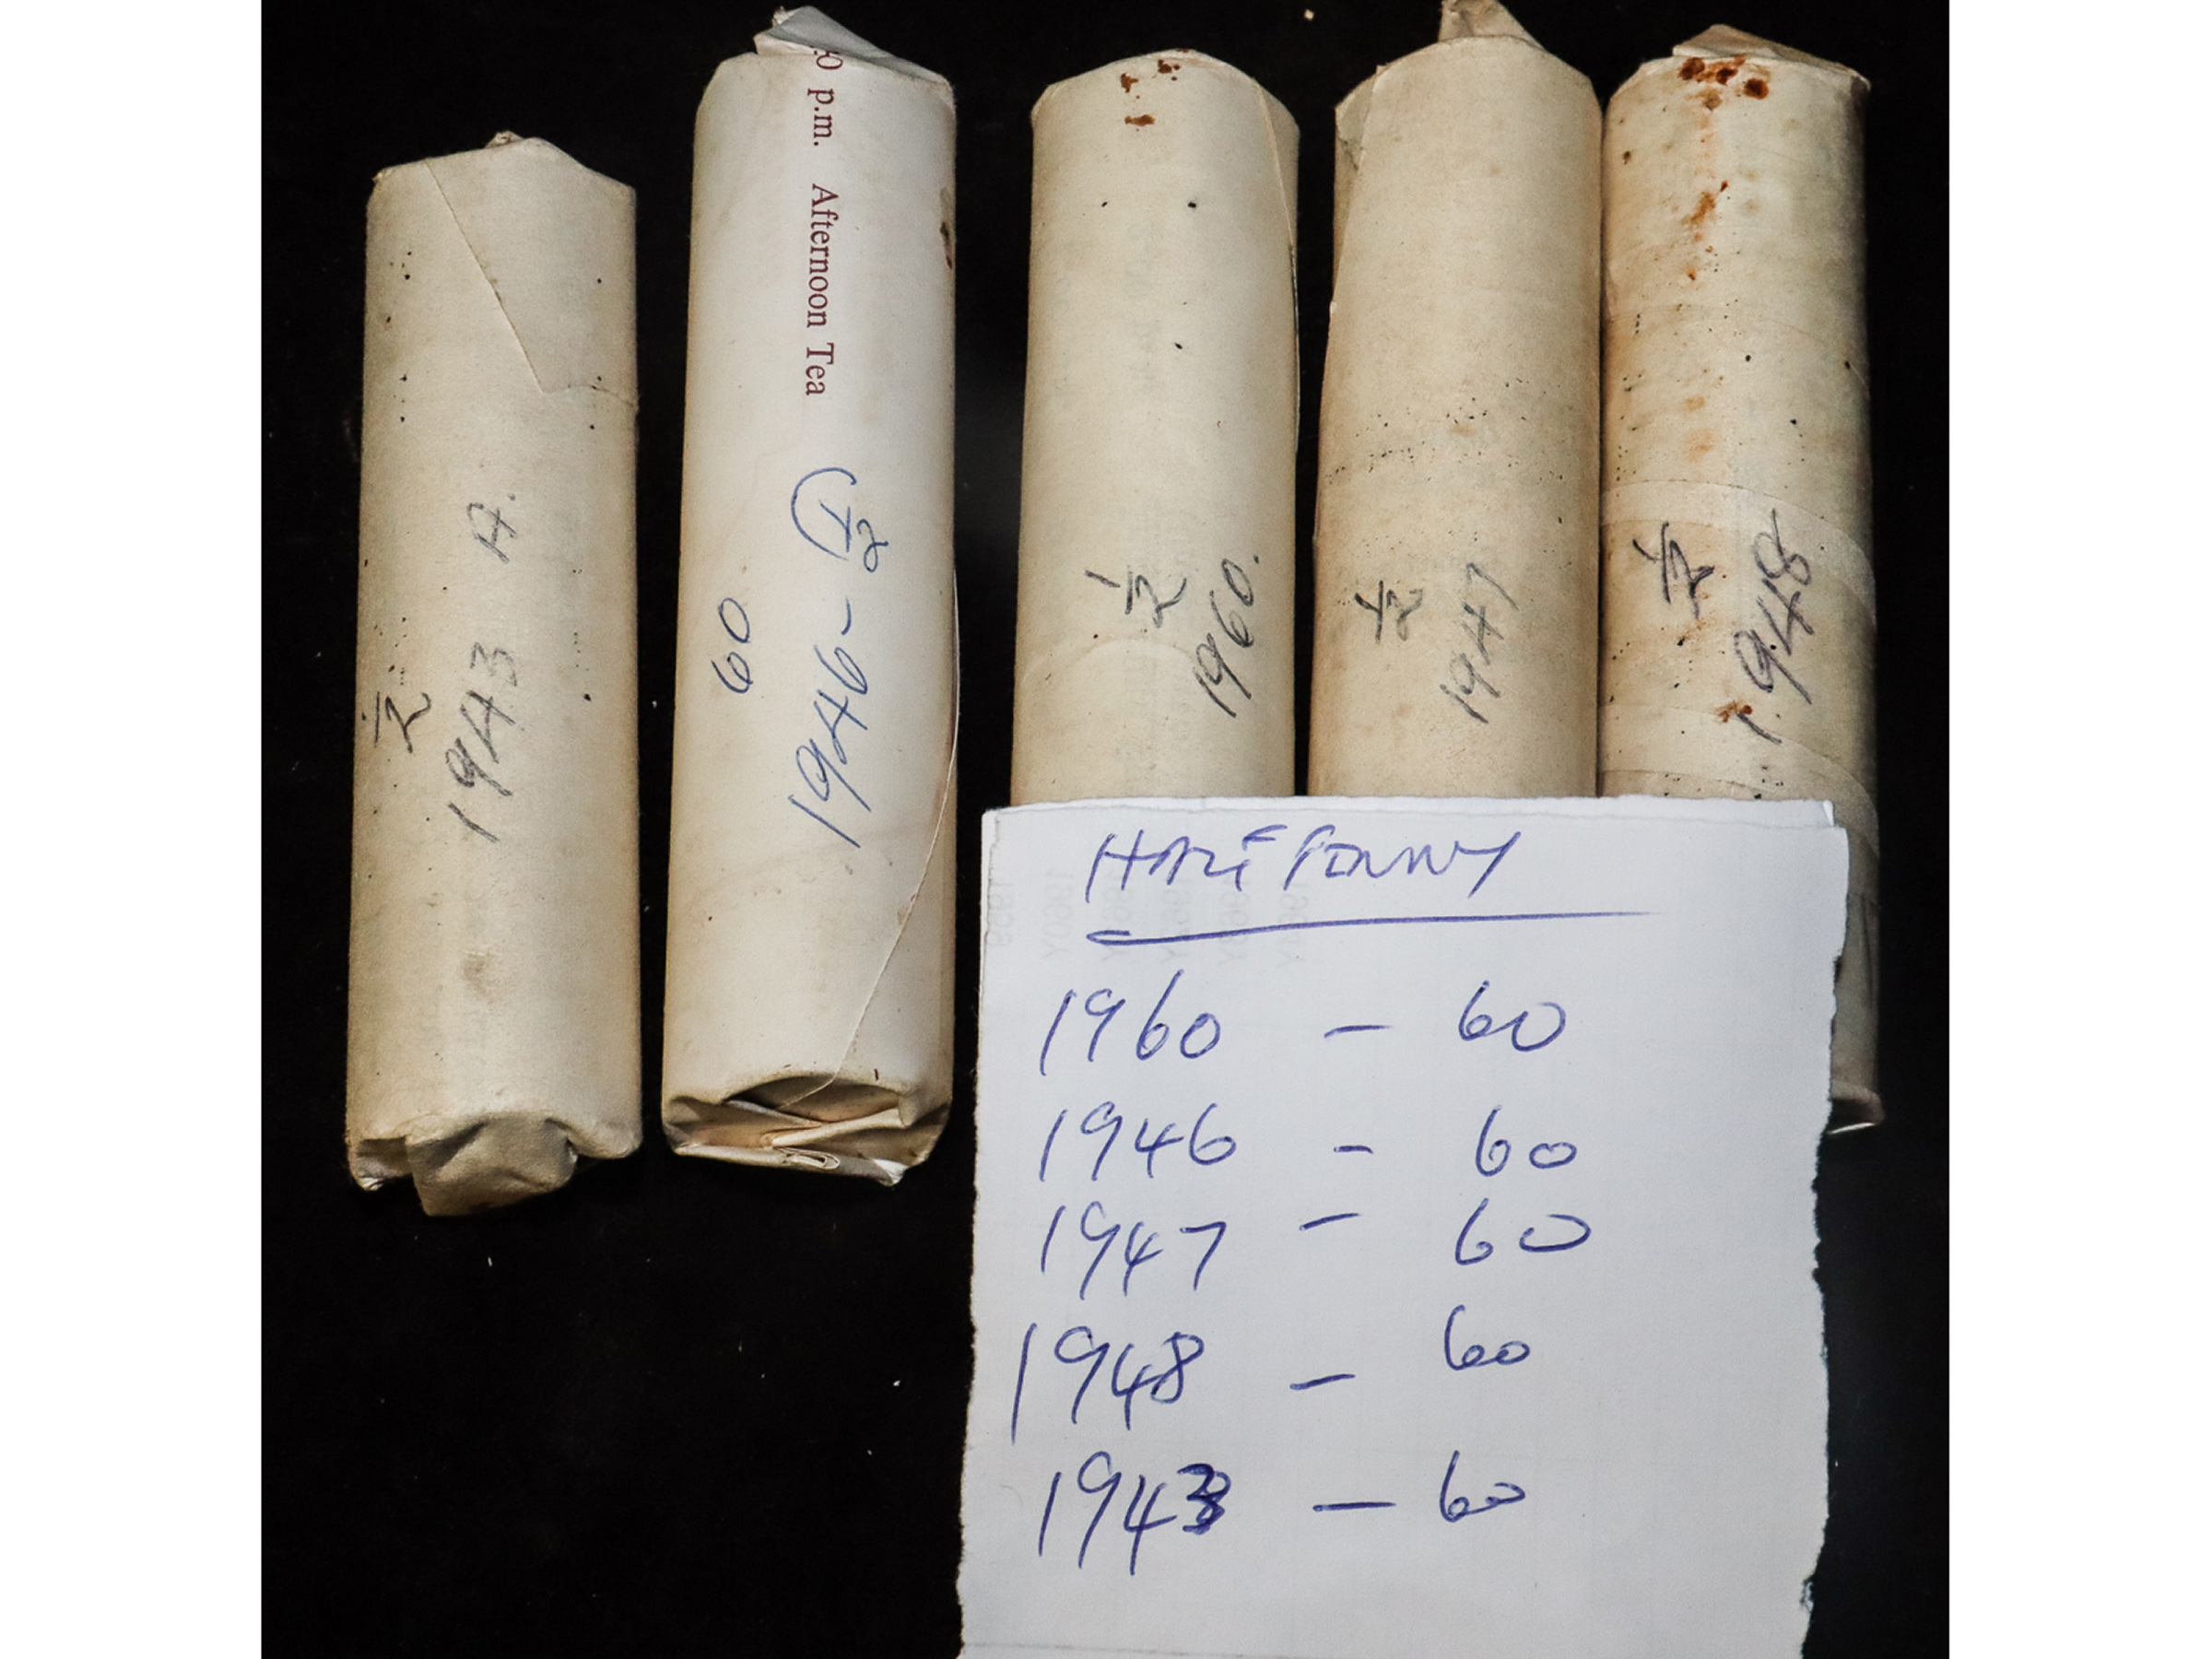 ½
1943 A.
0 p.m. Afternoon Tea
½ - 1946
60
½
1960.
½
1947
½
1948
HALF PENNY
1960 - 60
1946 - 60
1947 - 60
1948 - 60
1943 - 60